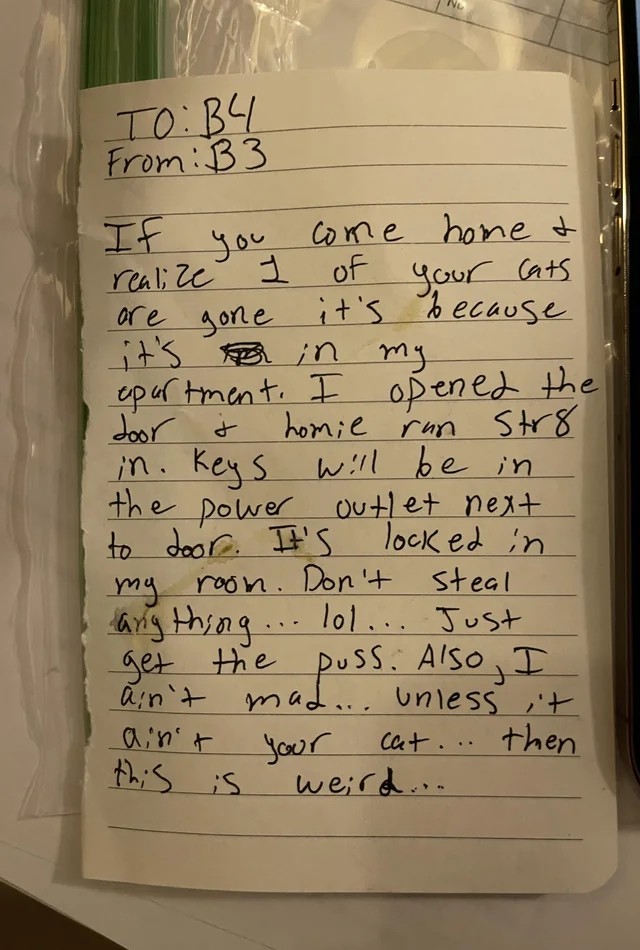 TO: B4
From: B3
If you come home &
realize 1 of your cats
are gone it's because
it's in my
apartment. I opened the
door & homie run str8
in. Keys will be in
the power outlet next
to door. It's locked in
my room. Don't steal
anything... lol... Just
get the puss. Also, I
ain't mad... unless it
ain't your cat... then
this is weird...